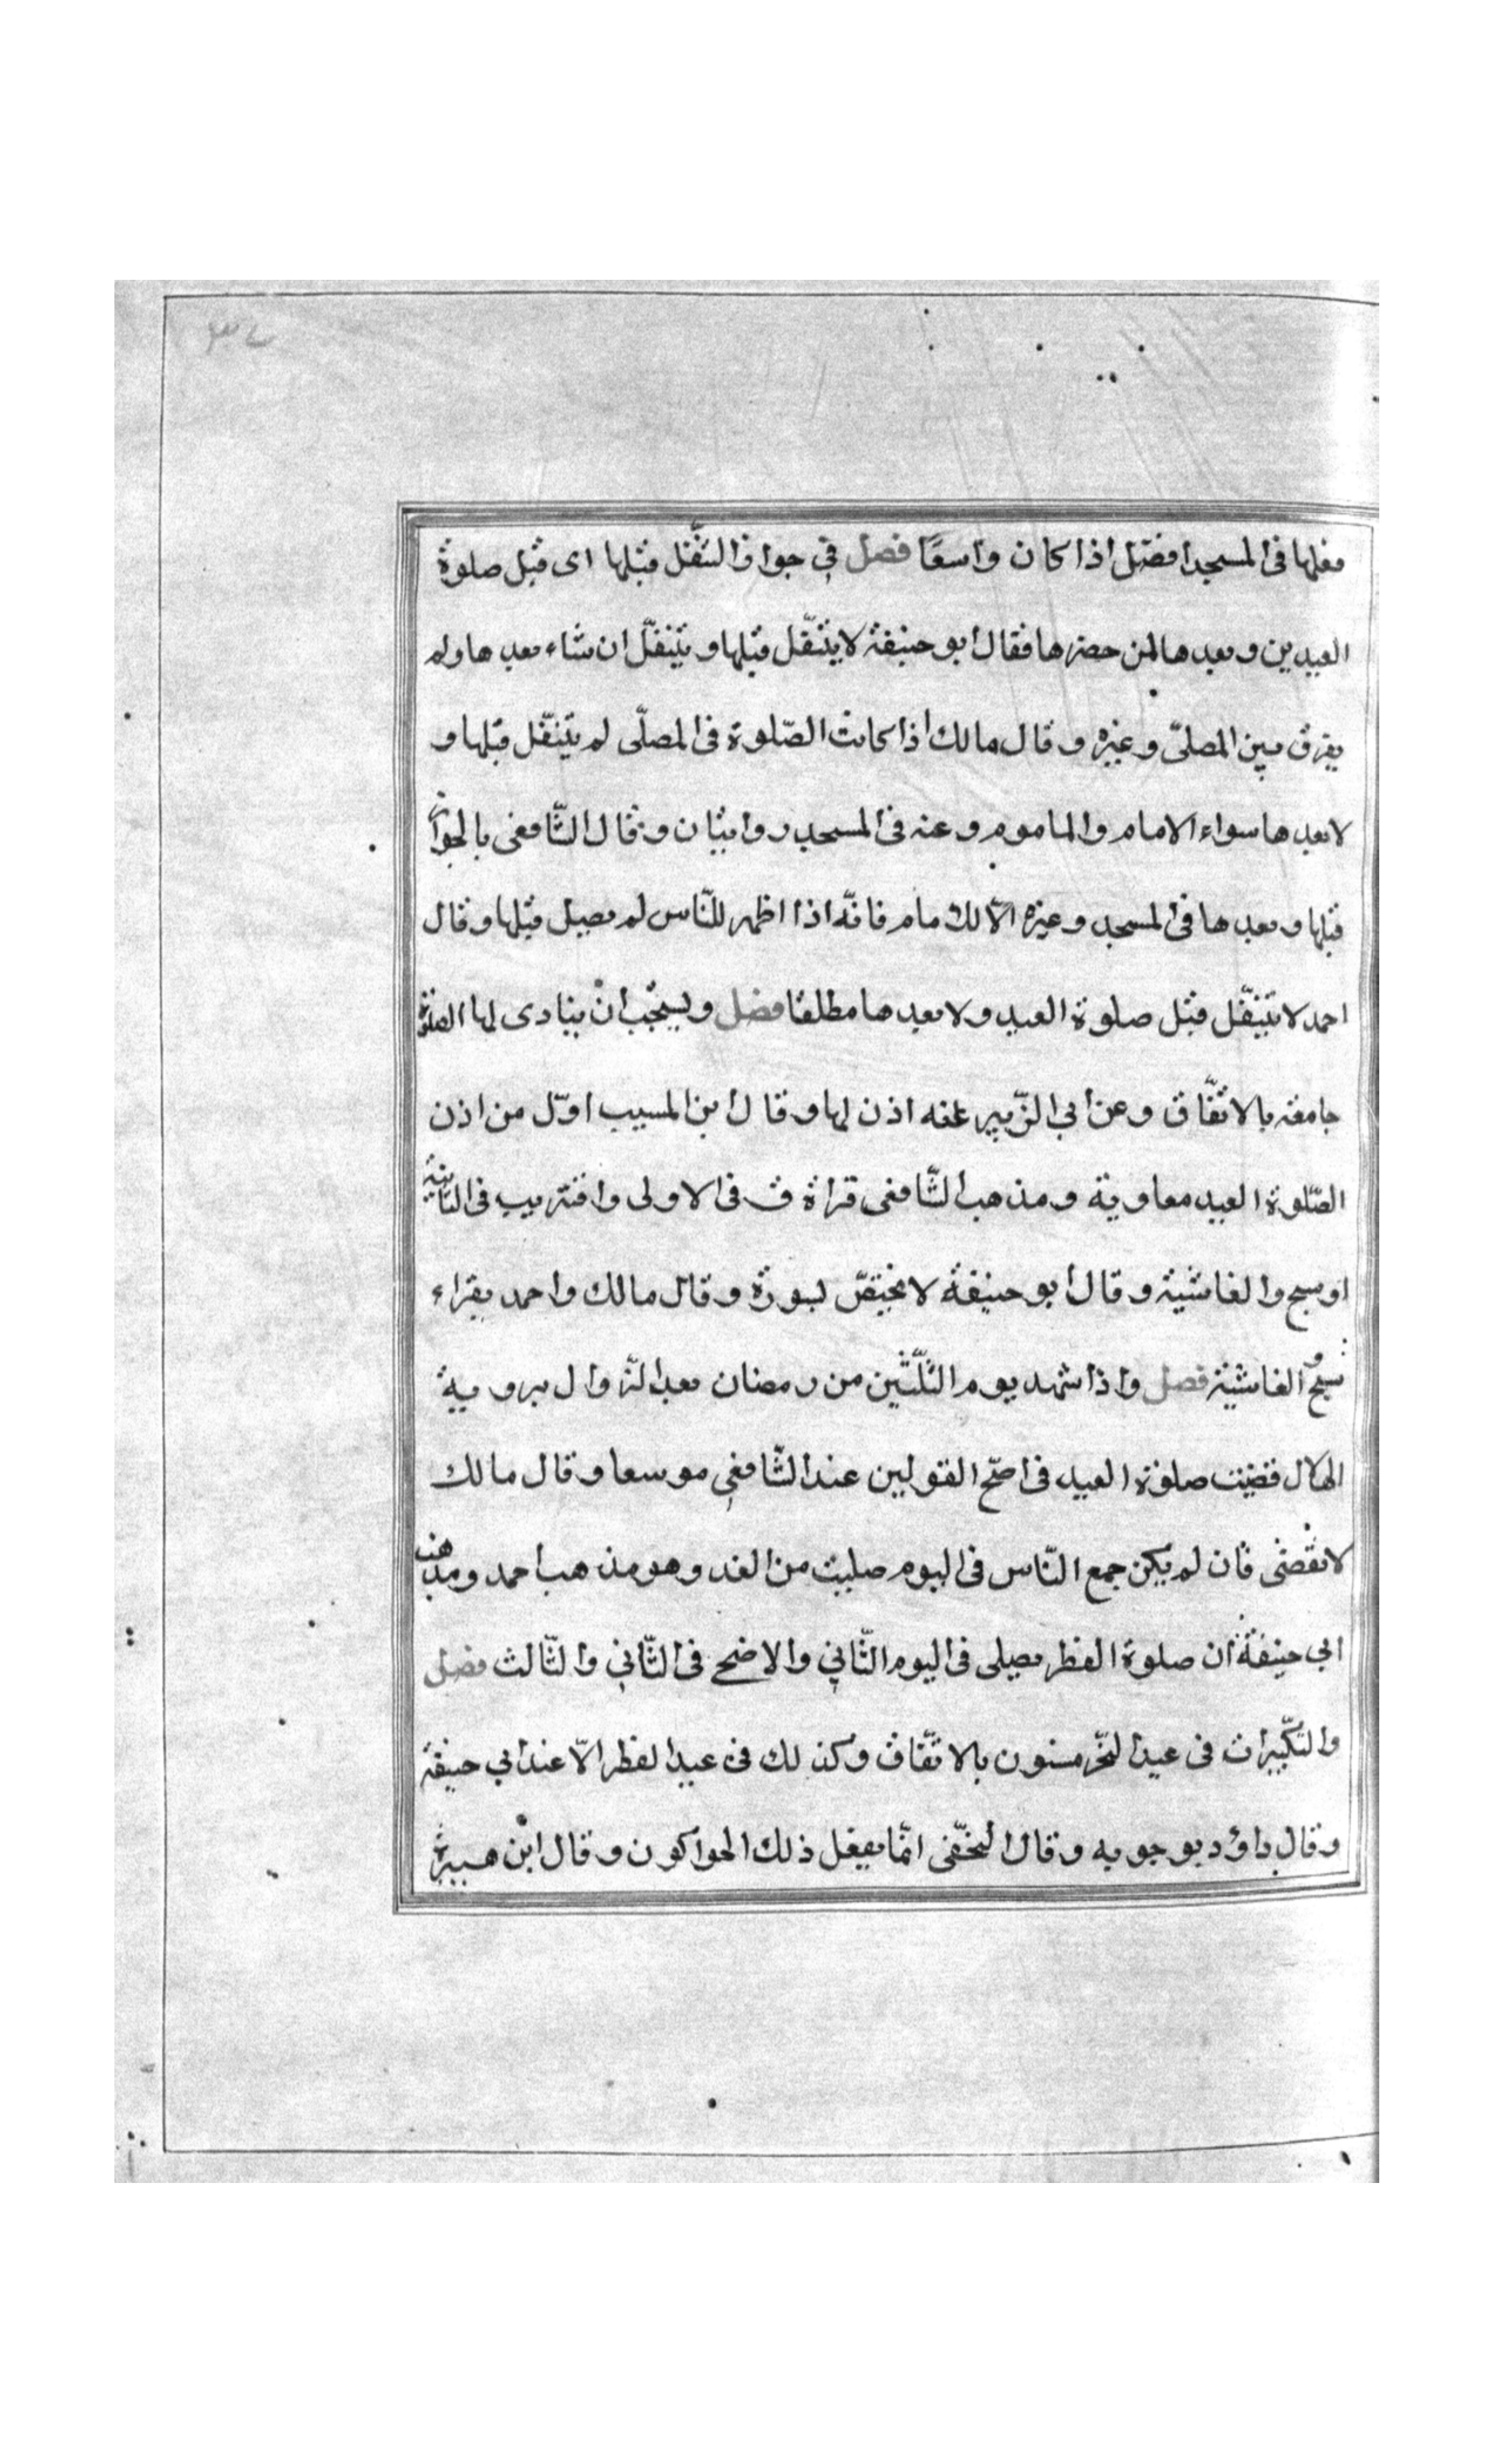 ٣٧
فعلها فی المسجد افضل اذا کان واسعًا فصل فی جواز التنفّل قبلها ای قبل صلوة
العیدین و بعدها لمن حضرها فقال ابو حنیفة لا یتنفّل قبلها و یتنفّل ان شاء بعدها ولم
یفرق بین المصلیّ و غیره و قال مالك اذا کانت الصّلوة فی المصلّی لم یتنفّل قبلها و
لا بعدها سواء الامام والماموم و عنه فی المسجد روایتان و قال الشّافعی بالجواز
قبلها و بعدها فی المسجد و غیره الّا للامام فانّه اذا اظهر للنّاس لم یصل قبلها و قال
احمد لا یتنفّل قبل صلوة العید ولا بعدها مطلقا فصل و یستحبّ أن ینادی لها الصلوة
جامعة بالاتّفاق و عن ابی الزّبیر انه اذن لها و قال ابن المسیب اوّل من اذن
الصّلوة العید معاویة و مذهب الشّافعی قراة ق فی الاولی واقتربب فی الثانیة
او سبح والغاشیة و قال ابو حنیفة لا یختصّ بسورة و قال مالك واحمد یقراء
سبح و الغاشیة فصل واذا شهد یوم الثلّثین من رمضان بعد الزّوال برویة
الهلال قضیت صلوة العید فی اصحّ القولین عند الشّافعی موسعا و قال مالك
لا تقضی فان لم یکن جمع النّاس فی الیوم صلیت من الغد و هو مذهب احمد و مذهب
ابی حنیفة ان صلوة الفطر یصلی فی الیوم الثّانی والاضح فی الثّانی والثّالث فصل
والتکّبیرات فی عید النحّر مسنون بالاتّفاق وکذلك فی عید الفطر الّا عند ابی حنیفة
و قال داؤد بوجوبه و قال النخّعی انّما یفعل ذلك الحواکون و قال ابن هبیرة